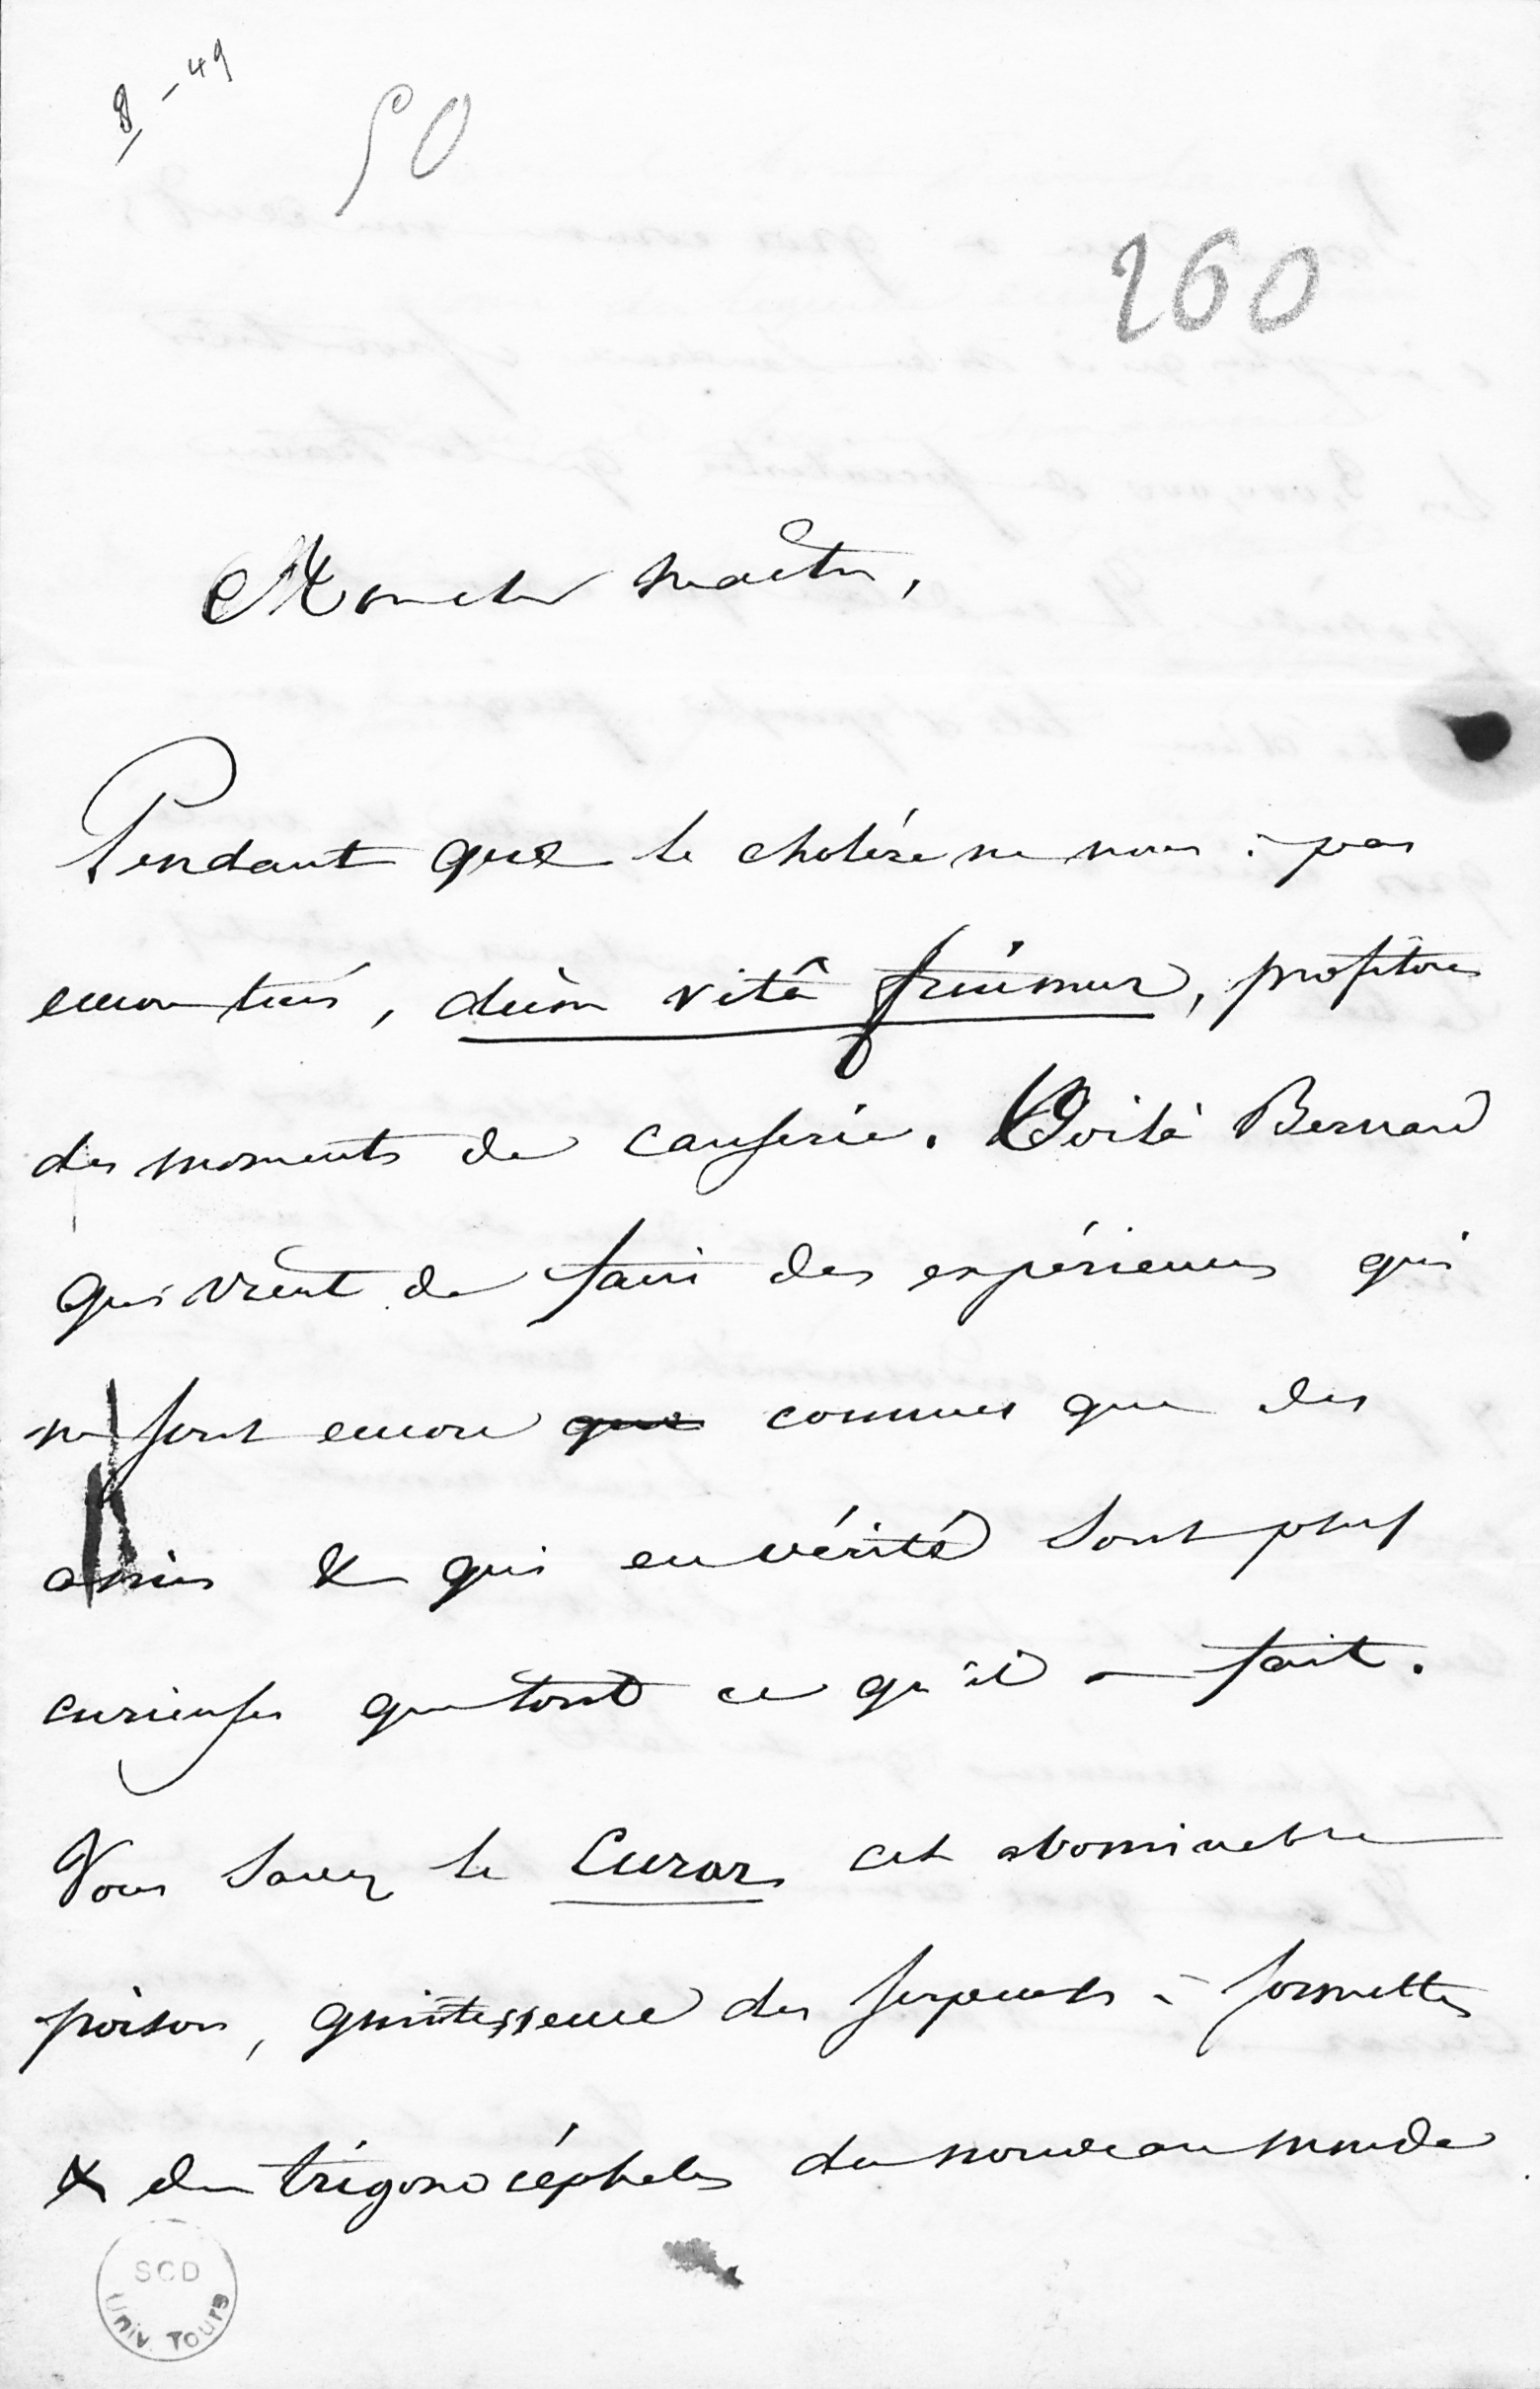 8 - 49
50
260
Mon cher maître,
Pendant que le choléra ne nous a pas
encore tués, dùm vitâ fruimur, profitons
des moments de causerie. Voilà Bernard
qui vient de faire des expériences qui
ne sont encore que connues que des
amis & qui en vérité sont plus
curieuses que tout ce qu'il a fait.
Vous savez le Curare cet abominable
poison, quintessence des serpents à sonnettes
& des trigonocéphales du nouveau monde
SCD
Univ. Tours